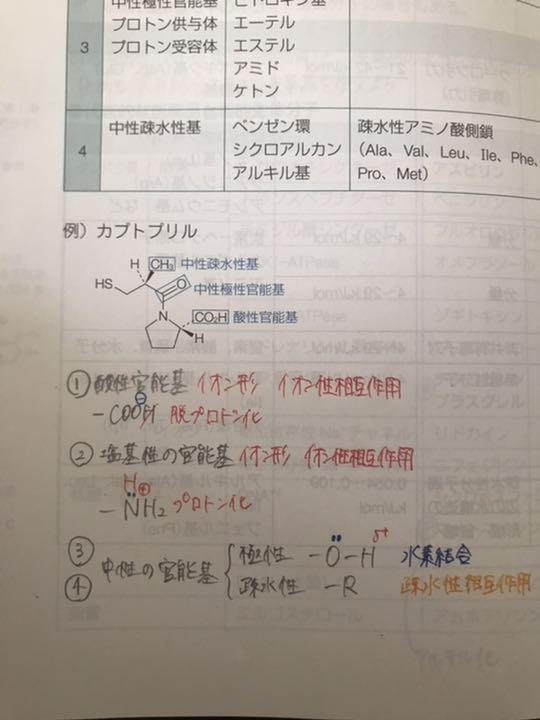 中性極性官能基 ヒドロキシ基
プロトン供与体 エーテル
3 プロトン受容体 エステル
アミド
ケトン
中性疎水性基 ベンゼン環 疎水性アミノ酸側鎖
4 シクロアルカン (Ala、Val、Leu、Ile、Phe、
アルキル基 Pro、Met)
例）カプトプリル
H CH₃ 中性疎水性基
HS O 中性極性官能基
N CO₂H 酸性官能基
H
① 酸性官能基 イオン形 イオン性相互作用
－COOH ⊖ 脱プロトン化
② 塩基性の官能基 イオン形 イオン性相互作用
H⊕
－NH₂ プロトン化
③ 極性 －O－H δ+ 水素結合
中性の官能基
④ 疎水性 －R 疎水性相互作用